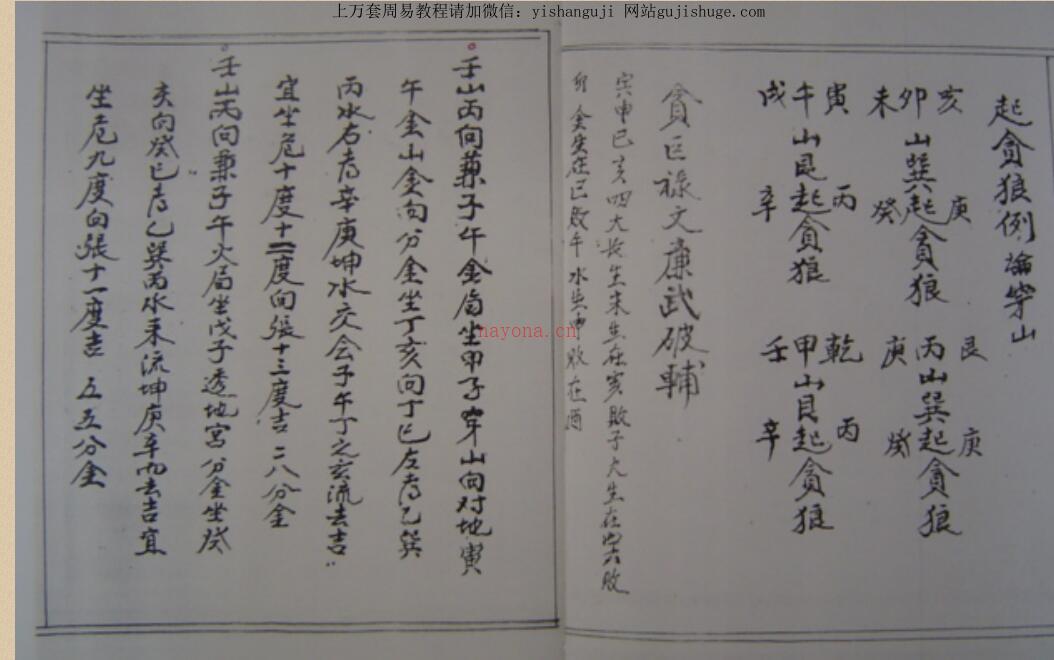 上万套周易教程请加微信：yishanguji 网站gujishuge.com
起贪狼例論穿山
亥 卯 未 山巽起贪狼 庚 癸
艮 丙 庚 山巽起贪狼 庚 癸
寅 午 戌 山艮起贪狼 丙 辛
乾 甲 壬 山艮起贪狼 丙 辛
貪巨祿文廉武破輔
寅申巳亥四大長生木生在亥敗子火生在寅敗
卯金生在巳敗午水生申敗在酉
壬山丙向兼子午金局坐甲子穿山向对地寅
午金山金向分金坐丁亥向丁巳左有乙巽
丙水右有辛庚坤水交会子午丁之亥流去吉
宜坐危十度十二度向張十三度吉 二八分金
壬山丙向兼子午火局坐戊子透地宫分金坐癸
亥向癸巳有乙巽丙水來流坤庚辛而去吉宜
坐危九度向張十一度吉 五五分金
nayona.cn